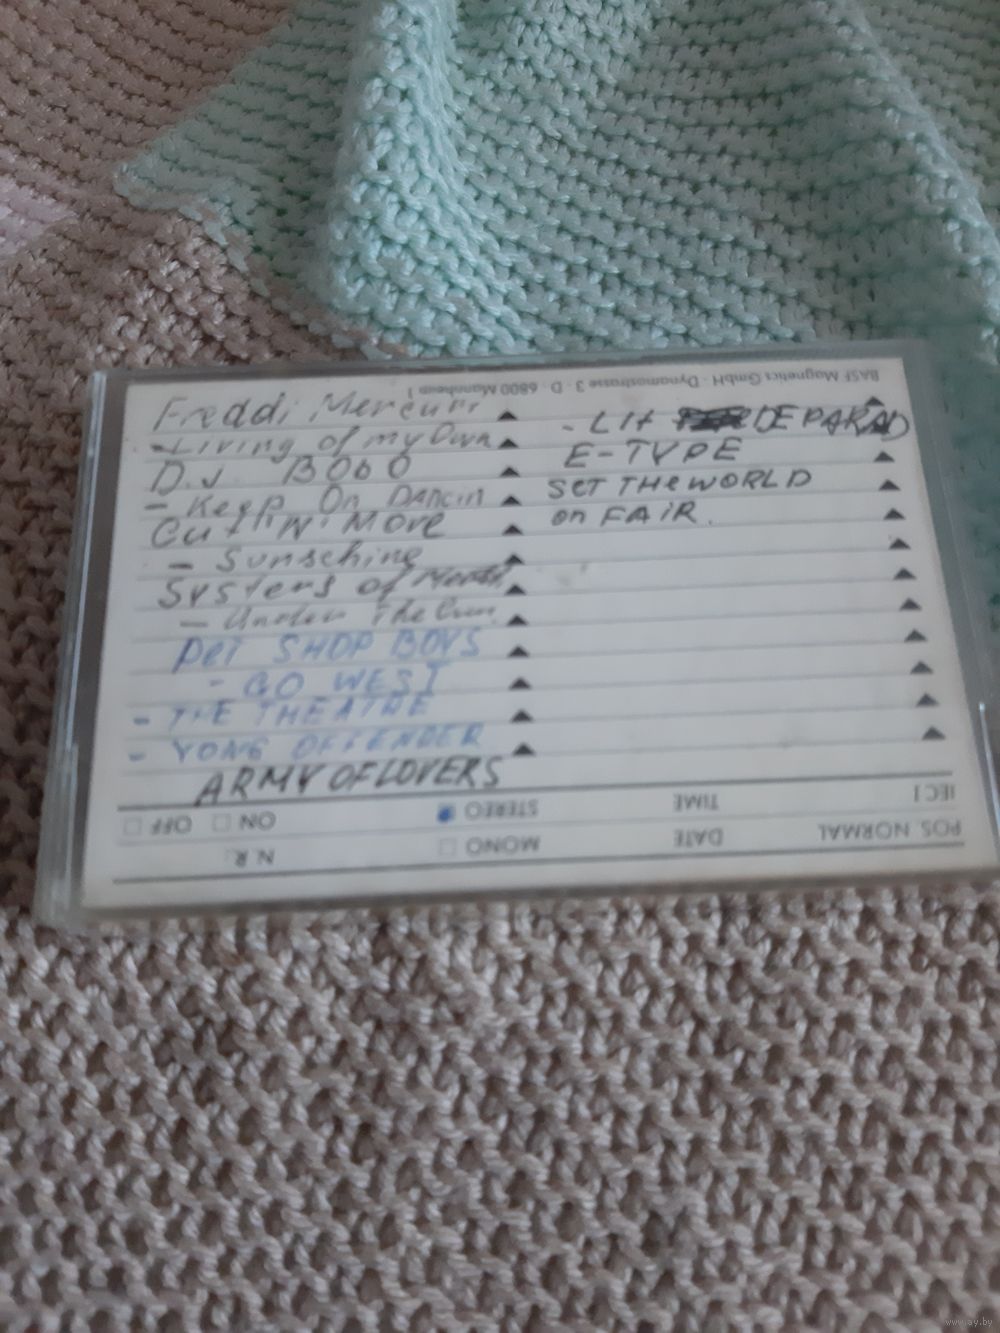 BASF Magnetics GmbH · Dynamostrasse 3 · D · 6800 Mannheim 1
Freddi Mercuri
- Living of my Own
D.J BOBO
- Keep On DANCIN
Cut 'N' Move
- Sunsching
Systers of
- Under The
PET SHOP BOYS
- GO WEST
- THE THEATRE
- YONG OFFENDER
ARMY OF LOVERS
- LIT DE PARAD
E-TYPE
SET THE WORLD
on FAIR.
IEC I TIME STEREO ON OFF
POS. NORMAL DATE MONO N.R.
www.ay.by